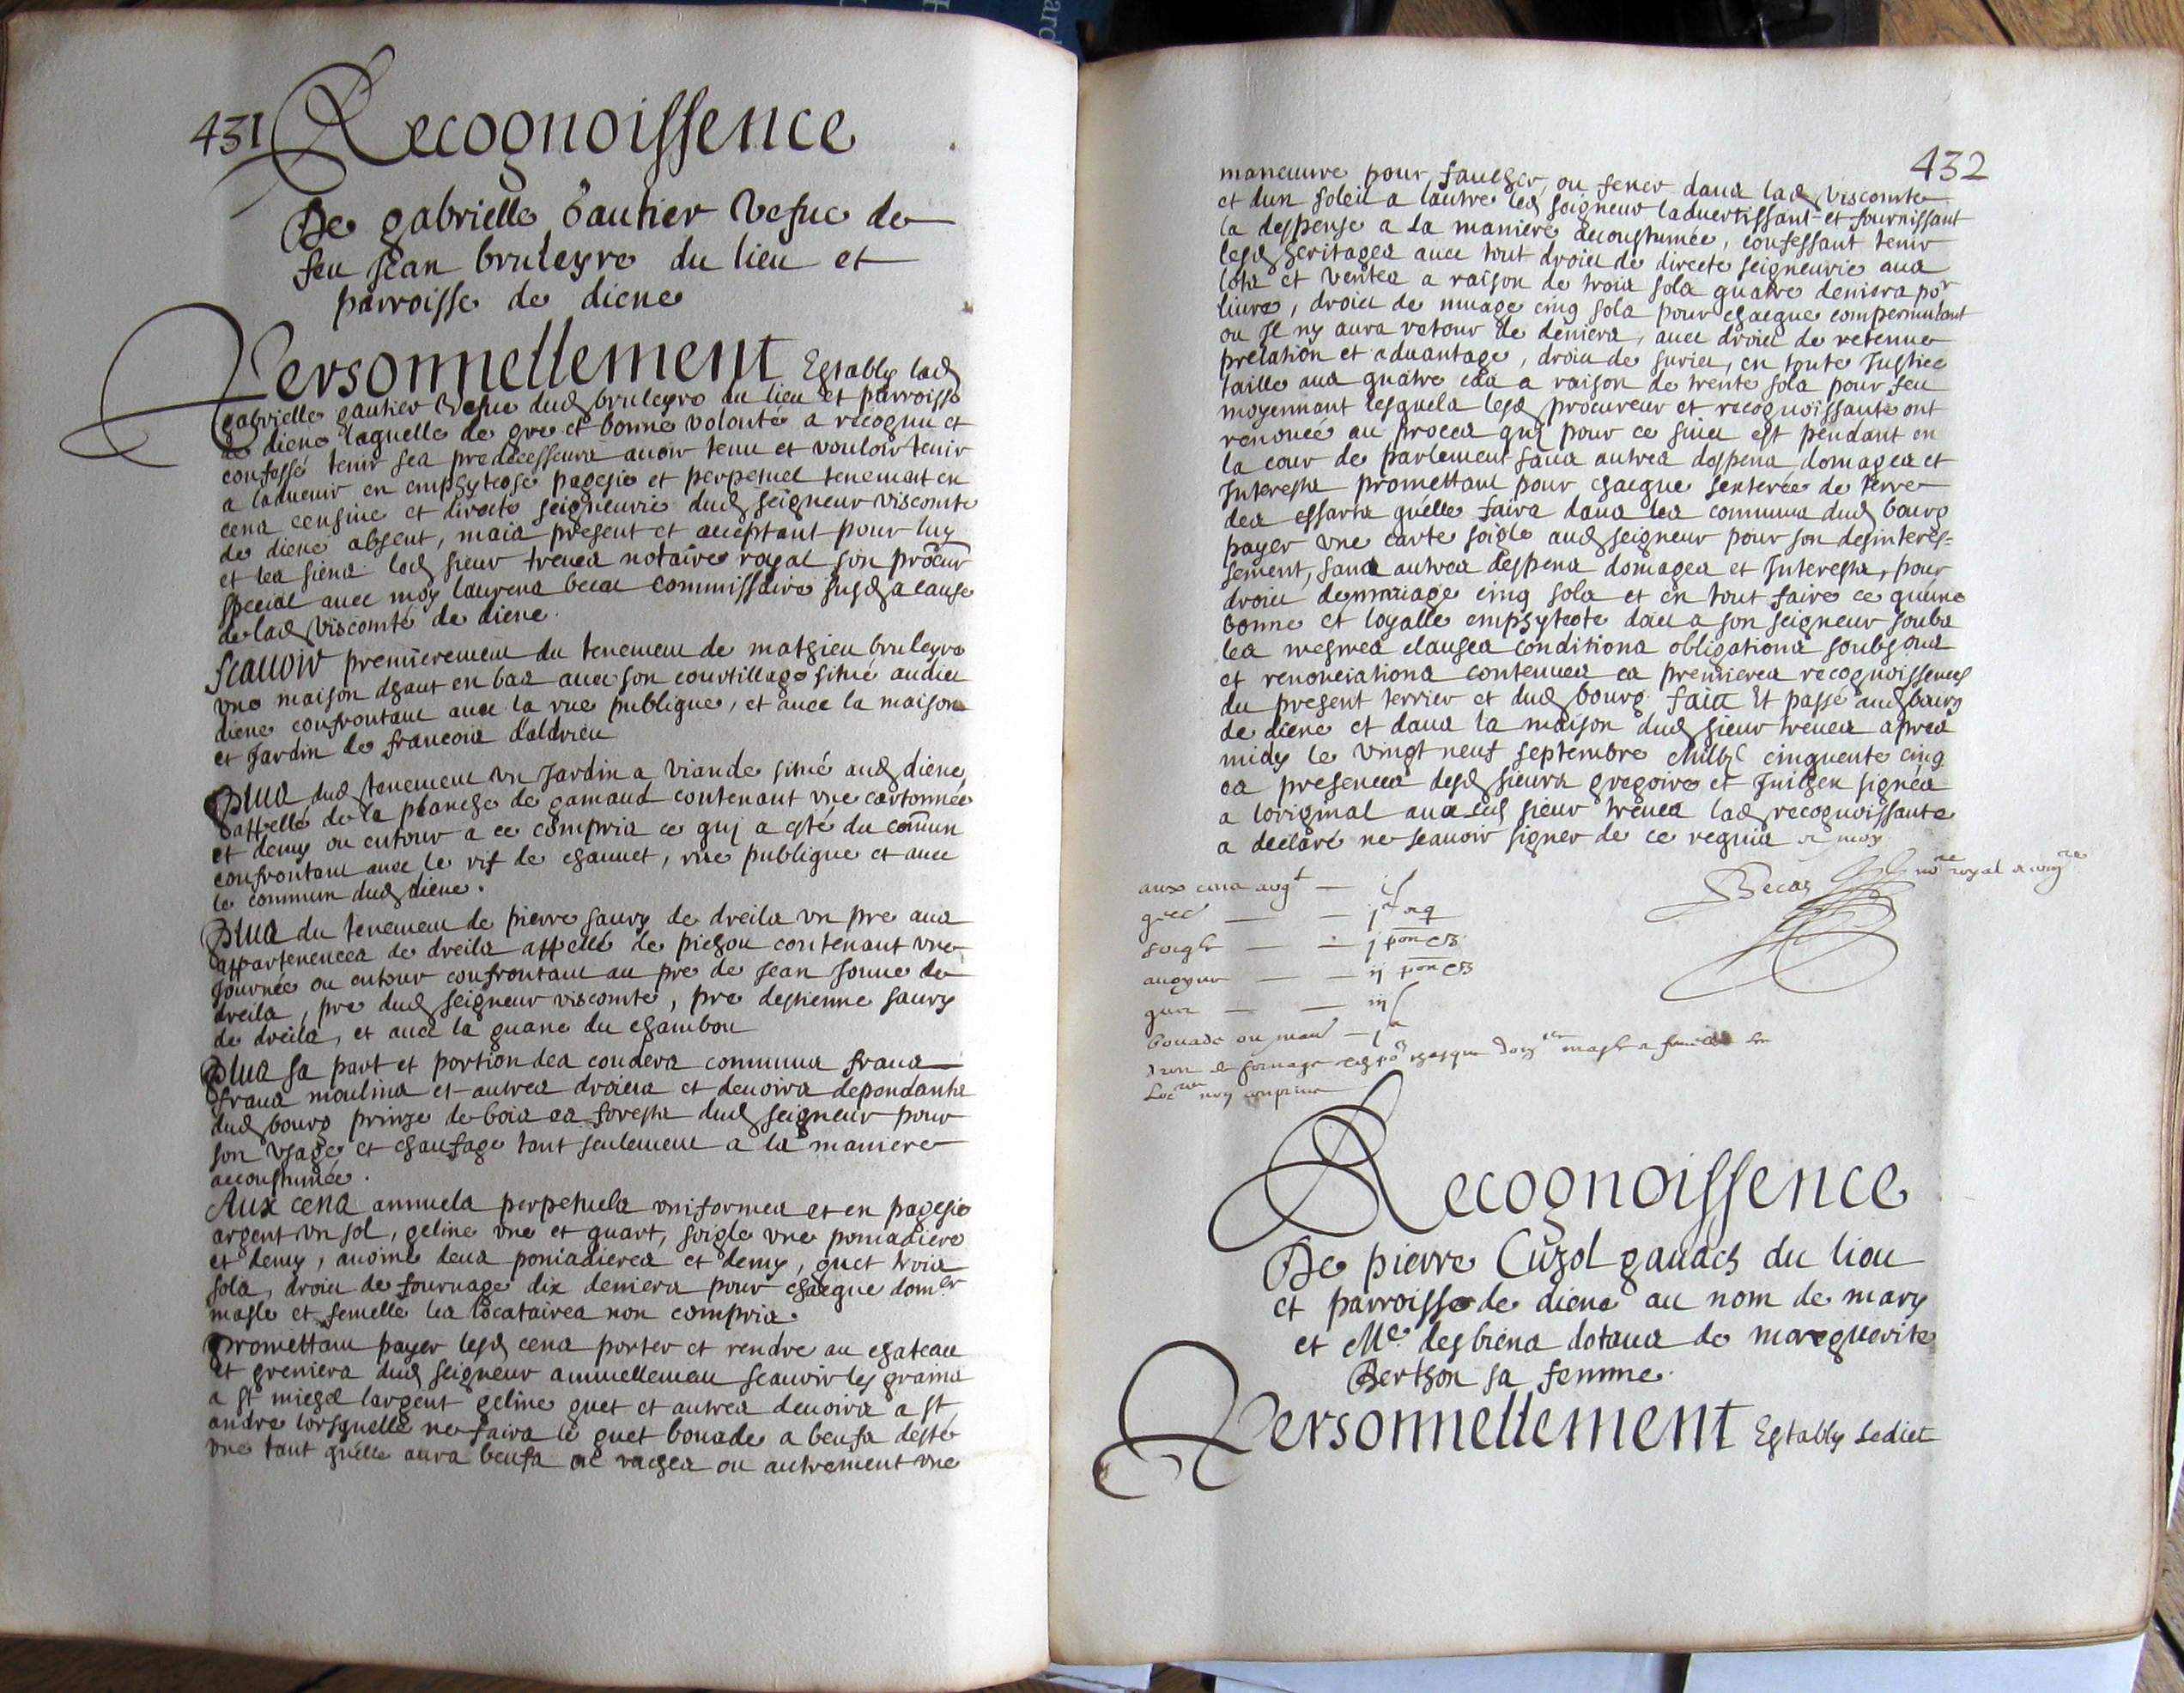 431 Recognoissence
De gabrielle Gautier Vefue de
feu Jean bruleyre du lieu et
parroisse de diene
Personnellement Establÿ lad
gabrielle gautier Vefue dud bruleyre du lieu et parroisse
de diene laquelle de gre et bonne volonté a recognu et
confessé tenir ses predecesseurs auoir tenu et vouloir tenir
a laduenir en emphyteose pagesie et perpetuel tenement en
cens censiue et directe seigneurie dud seigneur viscomte
de diene absent, mais present et acceptant pour luy
et les siens led sieur treues notaire royal son procur
special auec moy laurens becas commissaire susd a cause
de lad viscomté de diene
Scauoir premierement du tenement de mathieu bruleyre
vne maison dhaut en bas auec son courtillage situé audict
diene confrontant auec la rue publique, et auec la maison
et Jardin de francois daldrieu
Plus dud tenement vn Jardin a Viande situé aud diene
appellé de la planche de gamaud contenant vne cartonnée
et demy ou entour a ce compris ce qui a esté du comun
confrontant auec le rif de chauuet, rue publique et auec
le commun dud diene.
Plus du tenement de pierre saury de dreils vn pre aux
appartenences de dreils appellé de pichou contenant vne
Journée ou entour confrontant au pre de Jean Jonue de
dreils, pre dud seigneur viscomte, pre destienne saury
de dreils, et auec la guane du chambon
Plus sa part et portion des couders communs fraux
fraux moulins et autres droicts et deuoirs dependants
dud bourg prinze de bois es forests dud seigneur pour
son vsage et chaufage tant seulement a la maniere
accoustumée.
Aux cens annuels perpetuels vniformes et en pagesie
argent vn sol, geline vne et quart, soigle vne poniadiere
et demy, auoine deux poniadieres et demy, guet trois
sols, droict de fournage dix deniers pour chacque domer
masle et femelle les locataires non compris.
Promettant payer lesd cens porter et rendre au chateau
et greniers dud seigneur annuellement scauoir les grains
a st michel largent geline guet et autres deuoirs a st
andre lorsquelle ne faira le guet bouade a beufs desté
vne tant quelle aura beufs ou vaches ou autrement vne
432
manœuure pour faulcher, ou fener dans lad viscomte
et dun soleil a lautre led seigneur laduertissant et fournissant
la despense a la maniere accoustumée, confessant tenir
lesd heritages auec tout droict de directe seigneurie aux
lots et ventes a raison de trois sols quatre deniers por
liure, droict de muage cinq sols pour chacque compermutant
ou Jl ny aura retour de deniers, auec droict de retenue
prelation et aduantage, droict de suries, en toute Justice
taille aux quatre cas a raison de trente sols pour feu
moyennant lesquels lesd procureur et recognoissante ont
renoncé au proces qui pour ce suict est pendant en
la cour de parlement sans autres despens domages et
Interests promettant pour chacque senterée de terre
des essarts quelle faira dans les communs dud bourg
payer vne carte soigle aud seigneur pour son desinteres-
sement, sans autres despens domages et Interests, pour
droict de mariage cinq sols et en tout faire ce qu'une
bonne et loyalle emphyteote doict a son seigneur soubs
les mesmes clauses conditions obligations soubsons
et renonciations contenues es premieres recognoissences
du present terrier et dud bourg. faict Et passé aud bourg
de diene et dans la maison dud sieur treues apres
midy le vingt neuf septembre mil vjc cinquente cinq
es presences desd sieurs gregoire et Juilhen signés
a loriginal auec led sieur treues lad recognoissante
a declaré ne scauoir signer de ce requis et moy
aux cens argt — js
Becas nore royal
soigle — j pon et
bouade ou man — ja
Recognoissence
De pierre Cuzol gauach du lieu
et parroisse de diene au nom de mary
et Me des biens dotaux de marguerite
Berthon sa femme.
Personnellement Establÿ Ledict